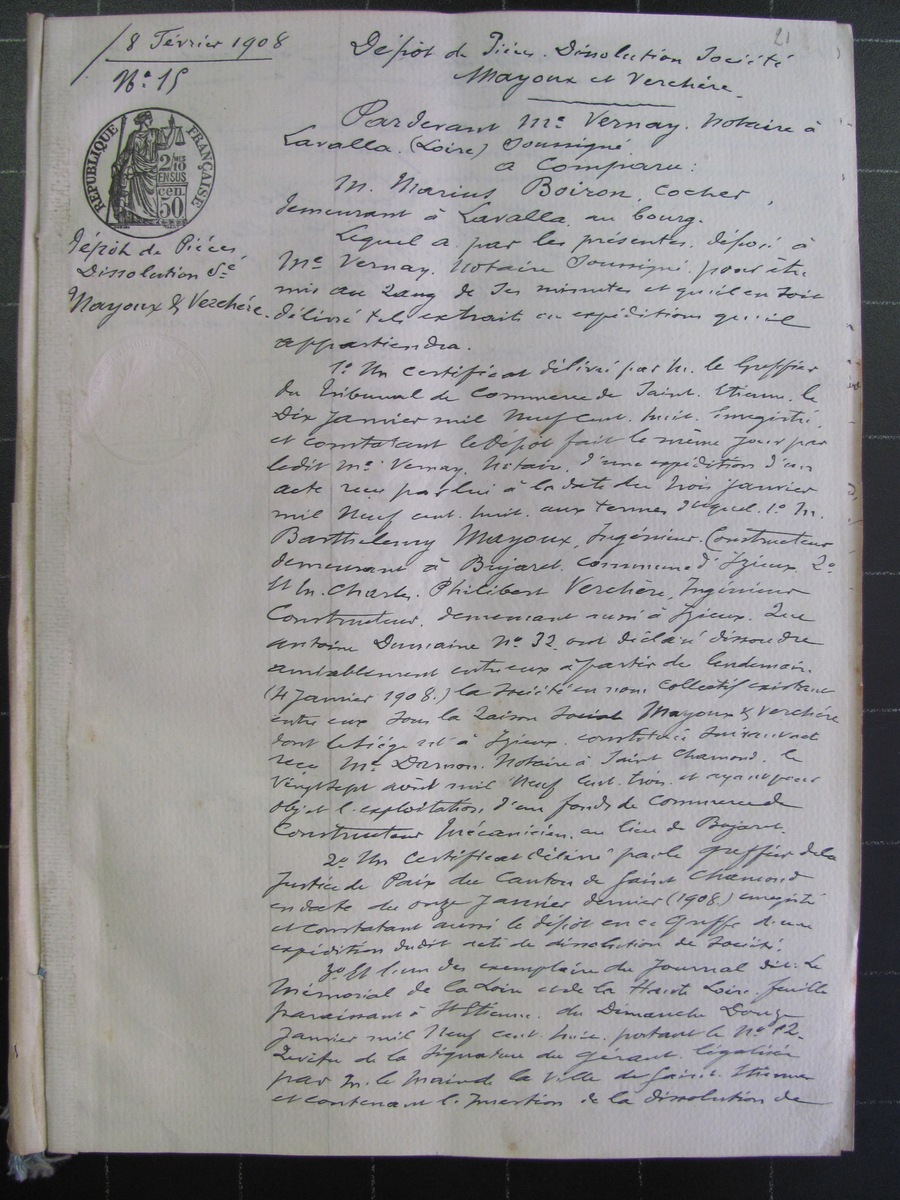 21
8 Février 1908
N° 15
Dépôt de Pièces. Dissolution Société
Mayoux et Verchère.
RÉPUBLIQUE FRANÇAISE
2/10 EN SUS
50 cen.
Dépôt de Pièces
Dissolution Sté
Mayoux & Verchère.
Pardevant Me Vernay. Notaire à
Lavalla. (Loire) Soussigné
a Comparu:
M. Marius Boiron, cocher,
demeurant à Lavalla, au bourg.
Lequel a, par les présentes, déposé à
Me Vernay, Notaire Soussigné, pour être
mis au Rang de Ses minutes et qu'il en soit
délivré tels extraits ou expéditions qu'il
appartiendra.
1° Un certificat délivré par M. le Greffier
du Tribunal de Commerce de Saint. Etienne, le
Dix Janvier mil Neuf cent. huit. Enregistré,
et constatant le dépôt fait le même jour par
ledit Me Vernay, Notaire, d'une expédition d'un
acte reçu par lui à la date du trois janvier
mil Neuf cent. huit. aux termes duquel. 1° M.
Barthelemy Mayoux, Ingénieur. Constructeur
demeurant à Bujaret, commune d'Izieux, 2°
Et M. Charles Philibert Verchère, Ingénieur
Constructeur, demeurant aussi à Izieux, Rue
antoine Dumaine N° 32, ont déclaré dissoudre
amiablement entre eux à partir du lendemain.
(4 Janvier 1908.) la Société en nom collectif existant
entre eux sous la Raison Sociale Mayoux & Verchère
dont le siège est à Izieux. constituée suivant act
reçu Me Damon. Notaire à Saint Chamond. le
Vingt sept avril mil Neuf Cent. trois. et ayant pour
objet l'exploitation d'un fonds de commerce de
Constructeur Mécanicien, au lieu de Bujaret.
2° Un certificat délivré par le greffier de la
Justice de Paix du Canton de Saint Chamond
en date du onze Janvier dernier (1908.) enregistré
et constatant aussi le dépôt en ce Greffe d'une
expédition dudit acte de dissolution de Société.
3° Et l'un des exemplaire du Journal dit. Le
Mémorial de la Loire et de la Haute Loire. feuille
paraissant à St Etienne. du Dimanche Douze
Janvier mil Neuf cent. huit. portant le N° 12.
Revêtu de la signature du gérant. légalisée
par M. le Maire de la Ville de Saint. Etienne
et contenant l'insertion de la dissolution de